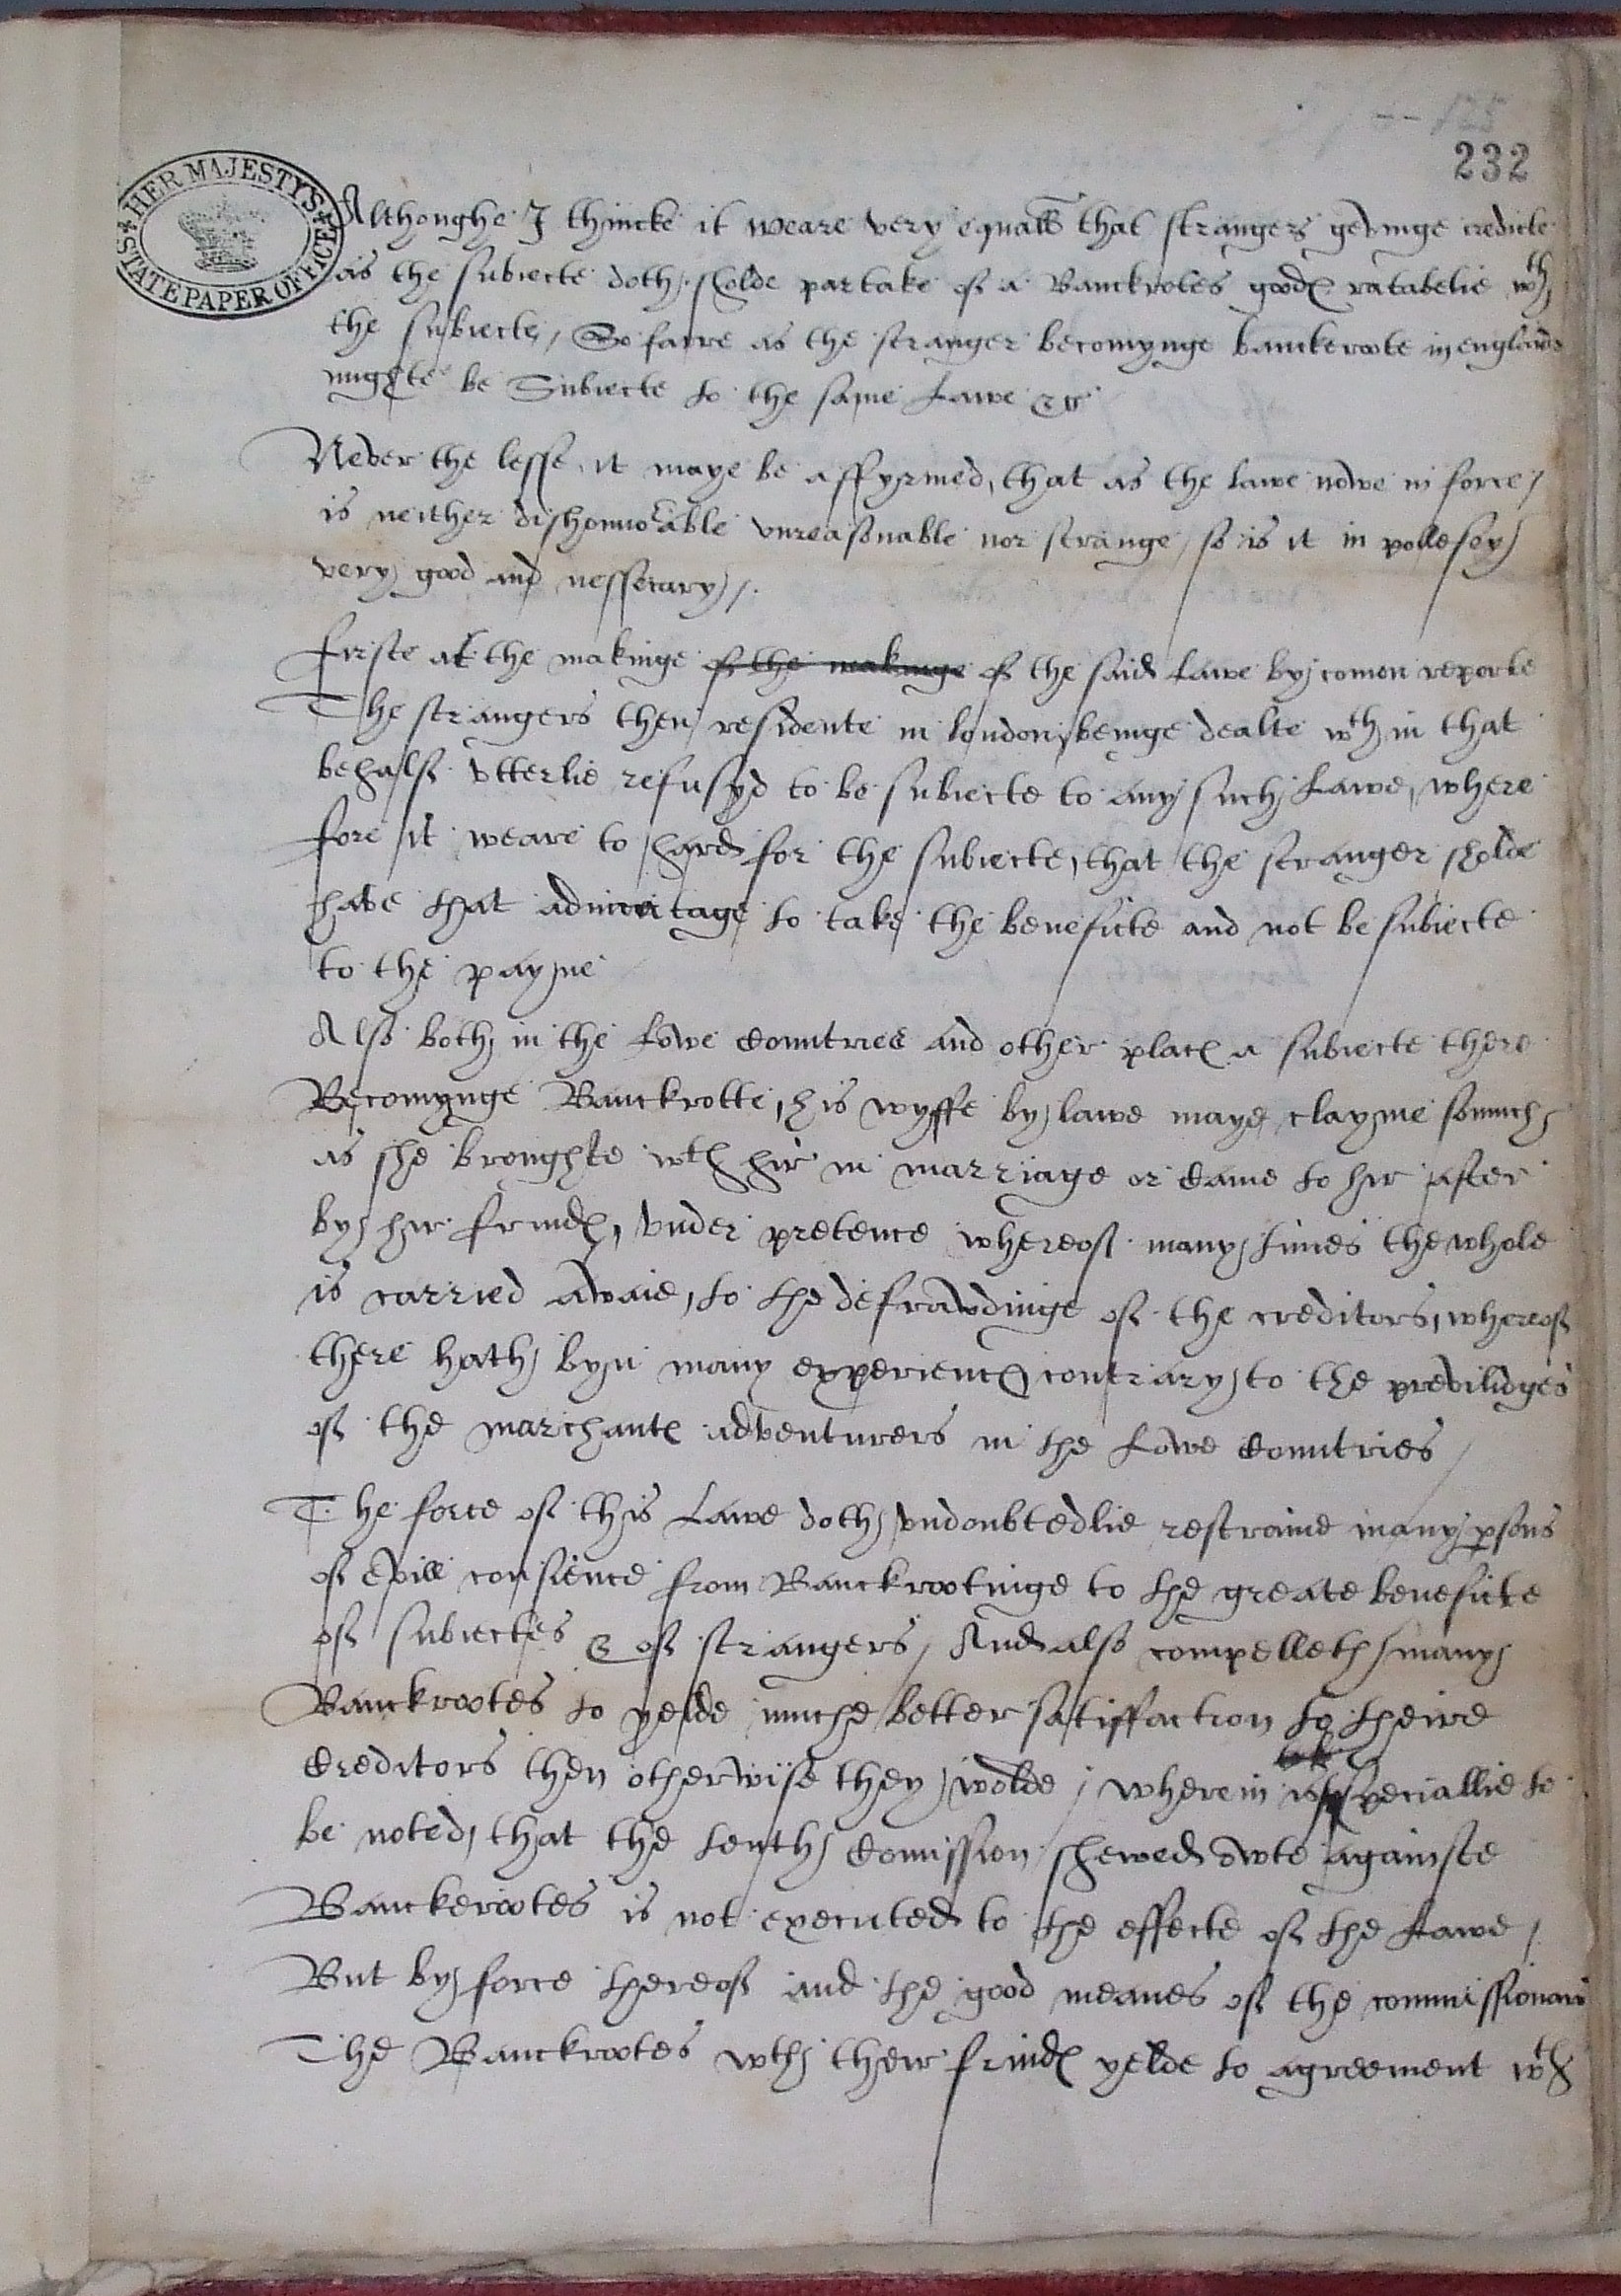 232
HER MAJESTY'S
STATE PAPER OFFICE
Althoughe I thincke it weare very equall that strangers gevinge credicte
as the subiecte doth, sholde partake of a Banckrotes goodes ratabelie wth
the subiecte, So farre as the stranger becomynge banckeroote in englande
mighte be Subiecte to the same Lawe
Never the lesse, it maye be affyrmed, that as the lawe nowe in force,
is neither dishonnorable vnreasonable nor strange, so is it in pollesey
very good and nessecary,.
Firste at the makinge of the makinge of the said Lawe by comon reporte
The strangers then residente in london, beinge dealte wth in that
behalf vtterlie refusyd to be subiecte to any such Lawe, where
fore it weare to hard for the subiecte, that the stranger sholde
have that advantage to take the beneficte and not be subiecte
to the payne
Also both in the Lowe Countries and other places a subiecte there
Becomynge Banckrotte, his wyffe by lawe maye clayme somuch
as she broughte wth hir in marriage or Came to hir after
by hir frindes, vnder pretence whereof many times the whole
is carried awaie, to the defrawdinge of the creditors, whereof
there hath byn many experiences contrary to the previlidges
of the marchantes adventurers in the Lowe Countries
The force of this Lawe doth vndoubtedlie restraine many psons
of evill consience from Banckrootinge to the greate beneficte
of subiectes & of strangers, And also compelleth many
Banckrootes to yelde muche better satisfaction to theire
Creditors then otherwise they wolde, wherein is speciallie to
be noted, that the tenth Comission shewed owte againste
Banckerootes is not executed to the effecte of the Lawe,
But by force thereof and the good meanes of the commissioners
The Banckrootes wth their frindes yelde to agreement wth